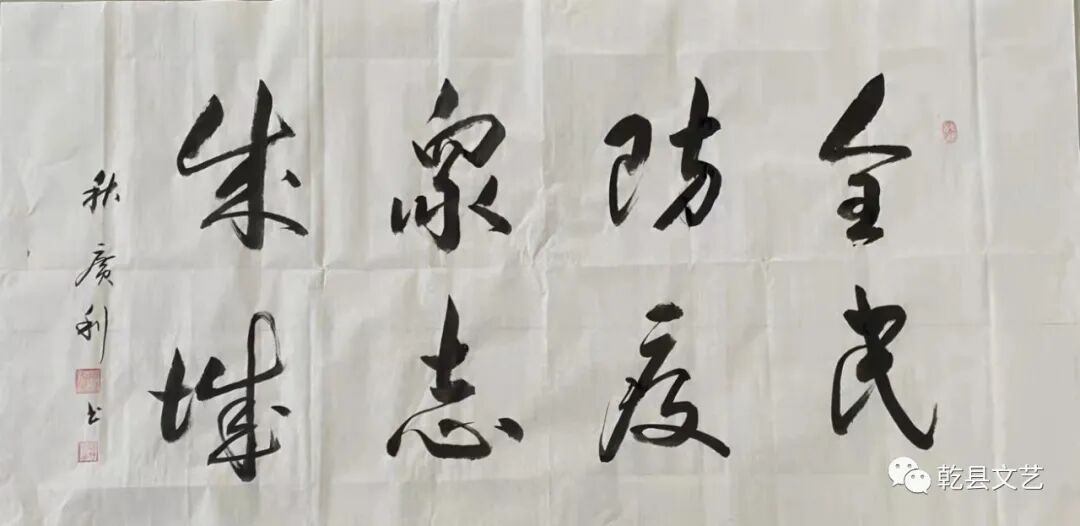 全民
防疫
眾志
成城
秋廣利
书
乾县文艺